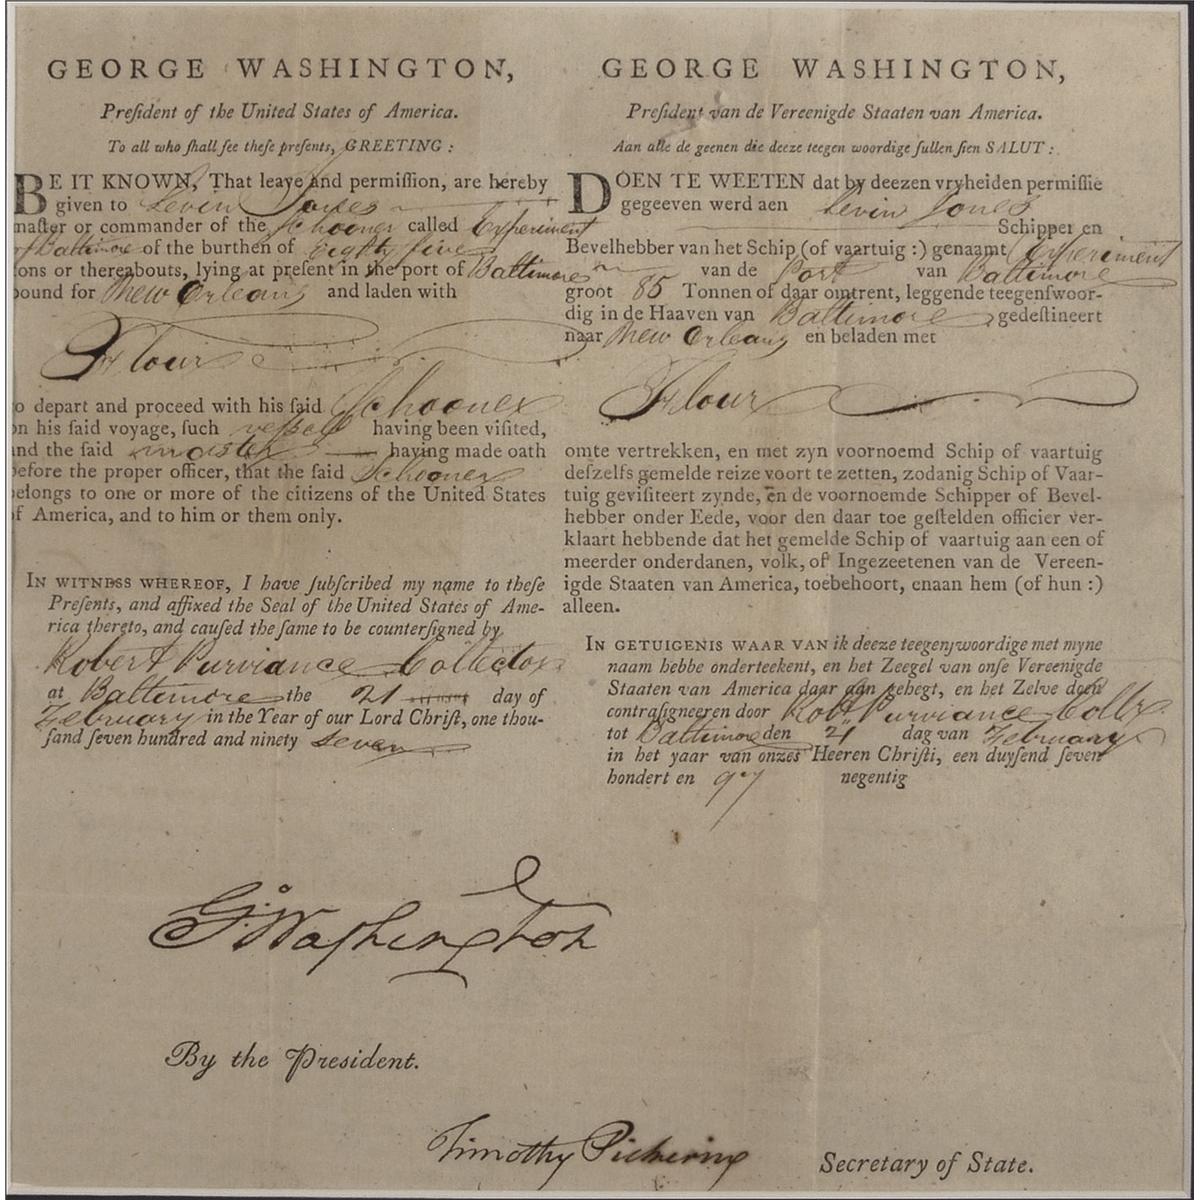 GEORGE WASHINGTON,
Preſident of the United States of America.
To all who ſhall ſee theſe preſents, GREETING :
BE IT KNOWN, That leave and permiſſion, are hereby
given to Levin Jones
maſter or commander of the Schooner called Experiment
of Baltimore of the burthen of Eighty five
tons or thereabouts, lying at preſent in the port of Baltimore
bound for New Orleans and laden with
Flour
to depart and proceed with his ſaid Schooner
on his ſaid voyage, ſuch veſsell having been viſited,
and the ſaid master having made oath
before the proper officer, that the ſaid Schooner
belongs to one or more of the citizens of the United States
of America, and to him or them only.
IN WITNESS WHEREOF, I have ſubſcribed my name to theſe
Preſents, and affixed the Seal of the United States of Ame-
rica thereto, and cauſed the ſame to be counterſigned by
Robert Purviance Collector
at Baltimore the 21 day of
February in the Year of our Lord Chriſt, one thou-
ſand ſeven hundred and ninety seven
GEORGE WASHINGTON,
Preſident van de Vereenigde Staaten van America.
Aan alle de geenen die deeze teegen woordige ſullen ſien SALUT :
DOEN TE WEETEN dat by deezen vryheiden permiſſie
gegeeven werd aen Levin Jones
Schipper en
Bevelhebber van het Schip (of vaartuig :) genaamt Experiment
van de Port van Baltimore
groot 85 Tonnen of daar omtrent, leggende teegenſwoor-
dig in de Haaven van Baltimore gedeſtineert
naar New Orleans en beladen met
Flour
omte vertrekken, en met zyn voornoemd Schip of vaartuig
deſzelfs gemelde reize voort te zetten, zodanig Schip of Vaar-
tuig geviſiteert zynde, en de voornoemde Schipper of Bevel-
hebber onder Eede, voor den daar toe geſtelden officier ver-
klaart hebbende dat het gemelde Schip of vaartuig aan een of
meerder onderdanen, volk, of Ingezeetenen van de Vereen-
igde Staaten van America, toebehoort, enaan hem (of hun :)
alleen.
IN GETUIGENIS WAAR VAN ik deeze teegenſwoordige met myne
naam hebbe onderteekent, en het Zeegel van onſe Vereenigde
Staaten van America daar aan gehegt, en het Zelve doen
contraſigneeren door Robt Purviance Collr
tot Baltimore den 21 dag van February
in het yaar van onzes Heeren Chriſti, een duyſend ſeven
hondert en 97 negentig
G:Washington
By the Preſident.
Timothy Pickering Secretary of State.